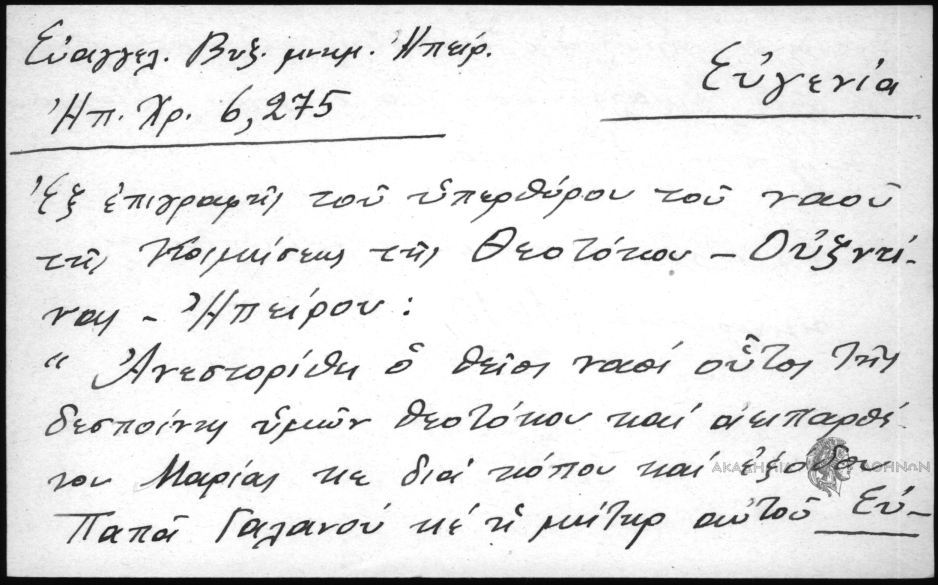 Εὐαγγελ. Βυζ. μνημ. Ἠπείρ.
Εὐγενία
Ἠπ. Χρ. 6,275
Ἐξ ἐπιγραφῆς τοῦ ὑπερθύρου τοῦ ναοῦ
τῆς Κοιμήσεως τῆς Θεοτόκου – Οὐζντί-
νας – Ἠπείρου:
“ Ἀνεστορίθη ὁ θεῖος ναός οὗτος τῆς
δεσποίνης ὑμῶν θεοτόκου καί ἀειπαρθέ-
νου Μαρίας κε διά κόπου καί ἐξόδου
Παπᾶ Γαλανού κέ ἡ μήτηρ αὐτοῦ Εὐ-
ΑΚΑΔΗΜΙΑ ΑΘΗΝΩΝ